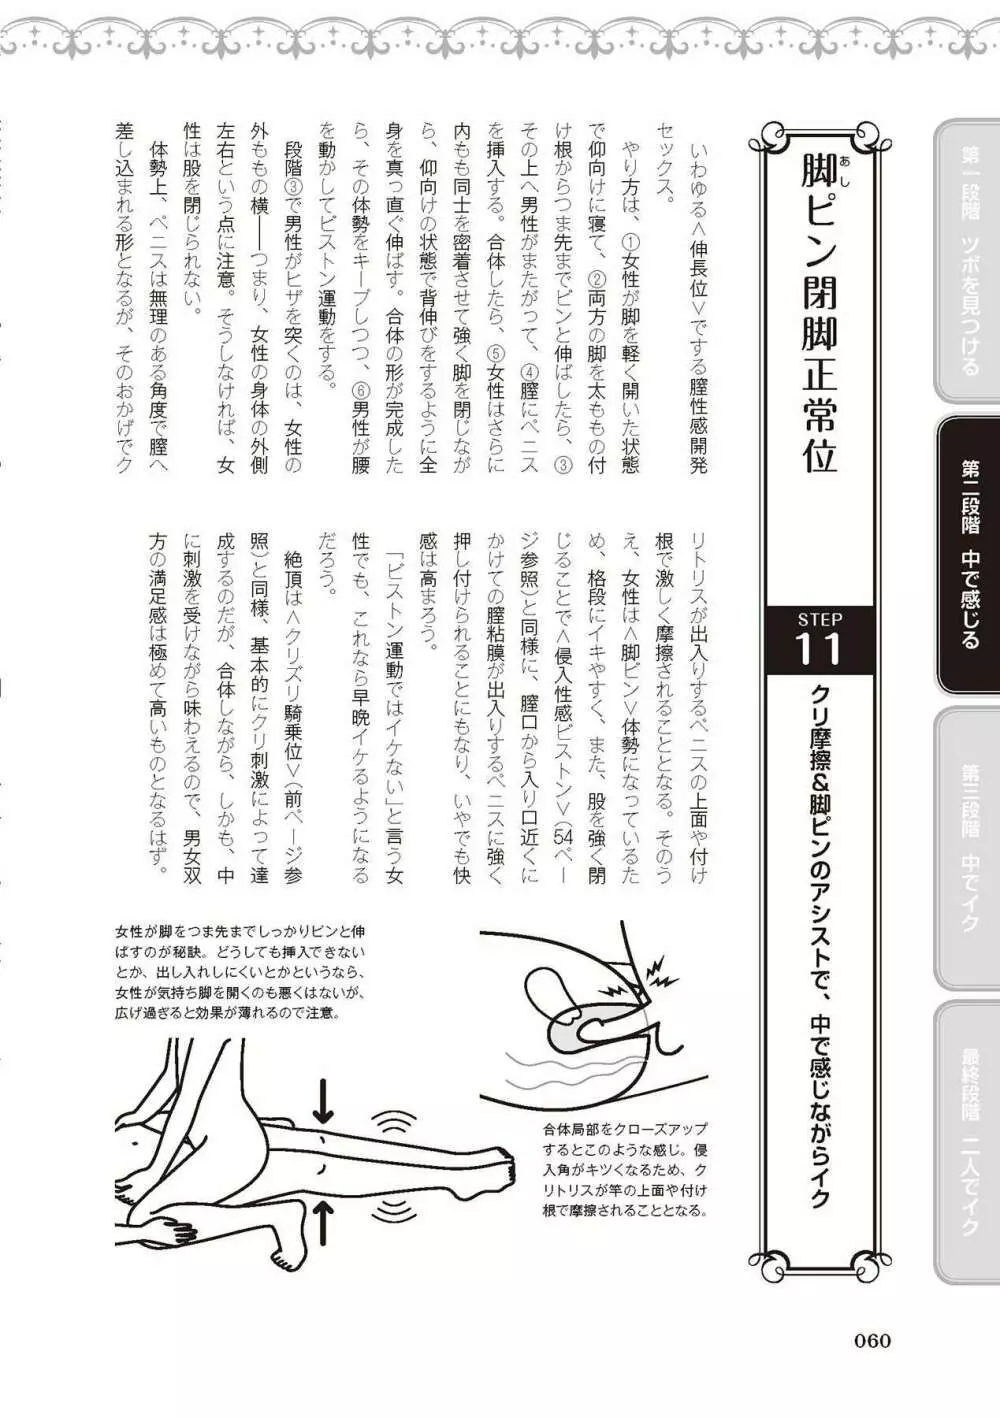 脚ピン閉脚正常位
あし
STEP
11
クリ摩擦&脚ピンのアシストで、中で感じながらイク
いわゆる<伸長位>でする膣性感開発
セックス。
やり方は、①女性が脚を軽く開いた状態
で仰向けに寝て、②両方の脚を太ももの付
け根からつま先までピンと伸ばしたら、③
その上へ男性がまたがって、④膣にペニス
を挿入する。合体したら、⑤女性はさらに
内もも同士を密着させて強く脚を閉じなが
ら、仰向けの状態で背伸びをするように全
身を真っ直ぐ伸ばす。合体の形が完成した
ら、その体勢をキープしつつ、⑥男性が腰
を動かしてピストン運動をする。
段階③で男性がヒザを突くのは、女性の
外ももの横――つまり、女性の身体の外側
左右という点に注意。そうしなければ、女
性は股を閉じられない。
体勢上、ペニスは無理のある角度で膣へ
差し込まれる形となるが、そのおかげでク
リトリスが出入りするペニスの上面や付け
根で激しく摩擦されることとなる。そのう
え、女性は<脚ピン>体勢になっているた
め、格段にイキやすく、また、股を強く閉
じることで<侵入性感ピストン>(54ペー
ジ参照)と同様に、膣口から入り口近くに
かけての膣粘膜が出入りするペニスに強く
押し付けられることにもなり、いやでも快
感は高まろう。
「ピストン運動ではイケない」と言う女
性でも、これなら早晩イケるようになる
だろう。
絶頂は<クリズリ騎乗位>(前ページ参
照)と同様、基本的にクリ刺激によって達
成するのだが、合体しながら、しかも、中
に刺激を受けながら味わえるので、男女双
方の満足感は極めて高いものとなるはず。
女性が脚をつま先までしっかりピンと伸
ばすのが秘訣。どうしても挿入できない
とか、出し入れしにくいとかというなら、
女性が気持ち脚を開くのも悪くはないが、
広げ過ぎると効果が薄れるので注意。
合体局部をクローズアップ
するとこのような感じ。侵
入角がキツくなるため、ク
リトリスが竿の上面や付け
根で摩擦されることとなる。
第一段階 ツボを見つける
第二段階 中で感じる
第三段階 中でイク
最終段階 二人でイク
060